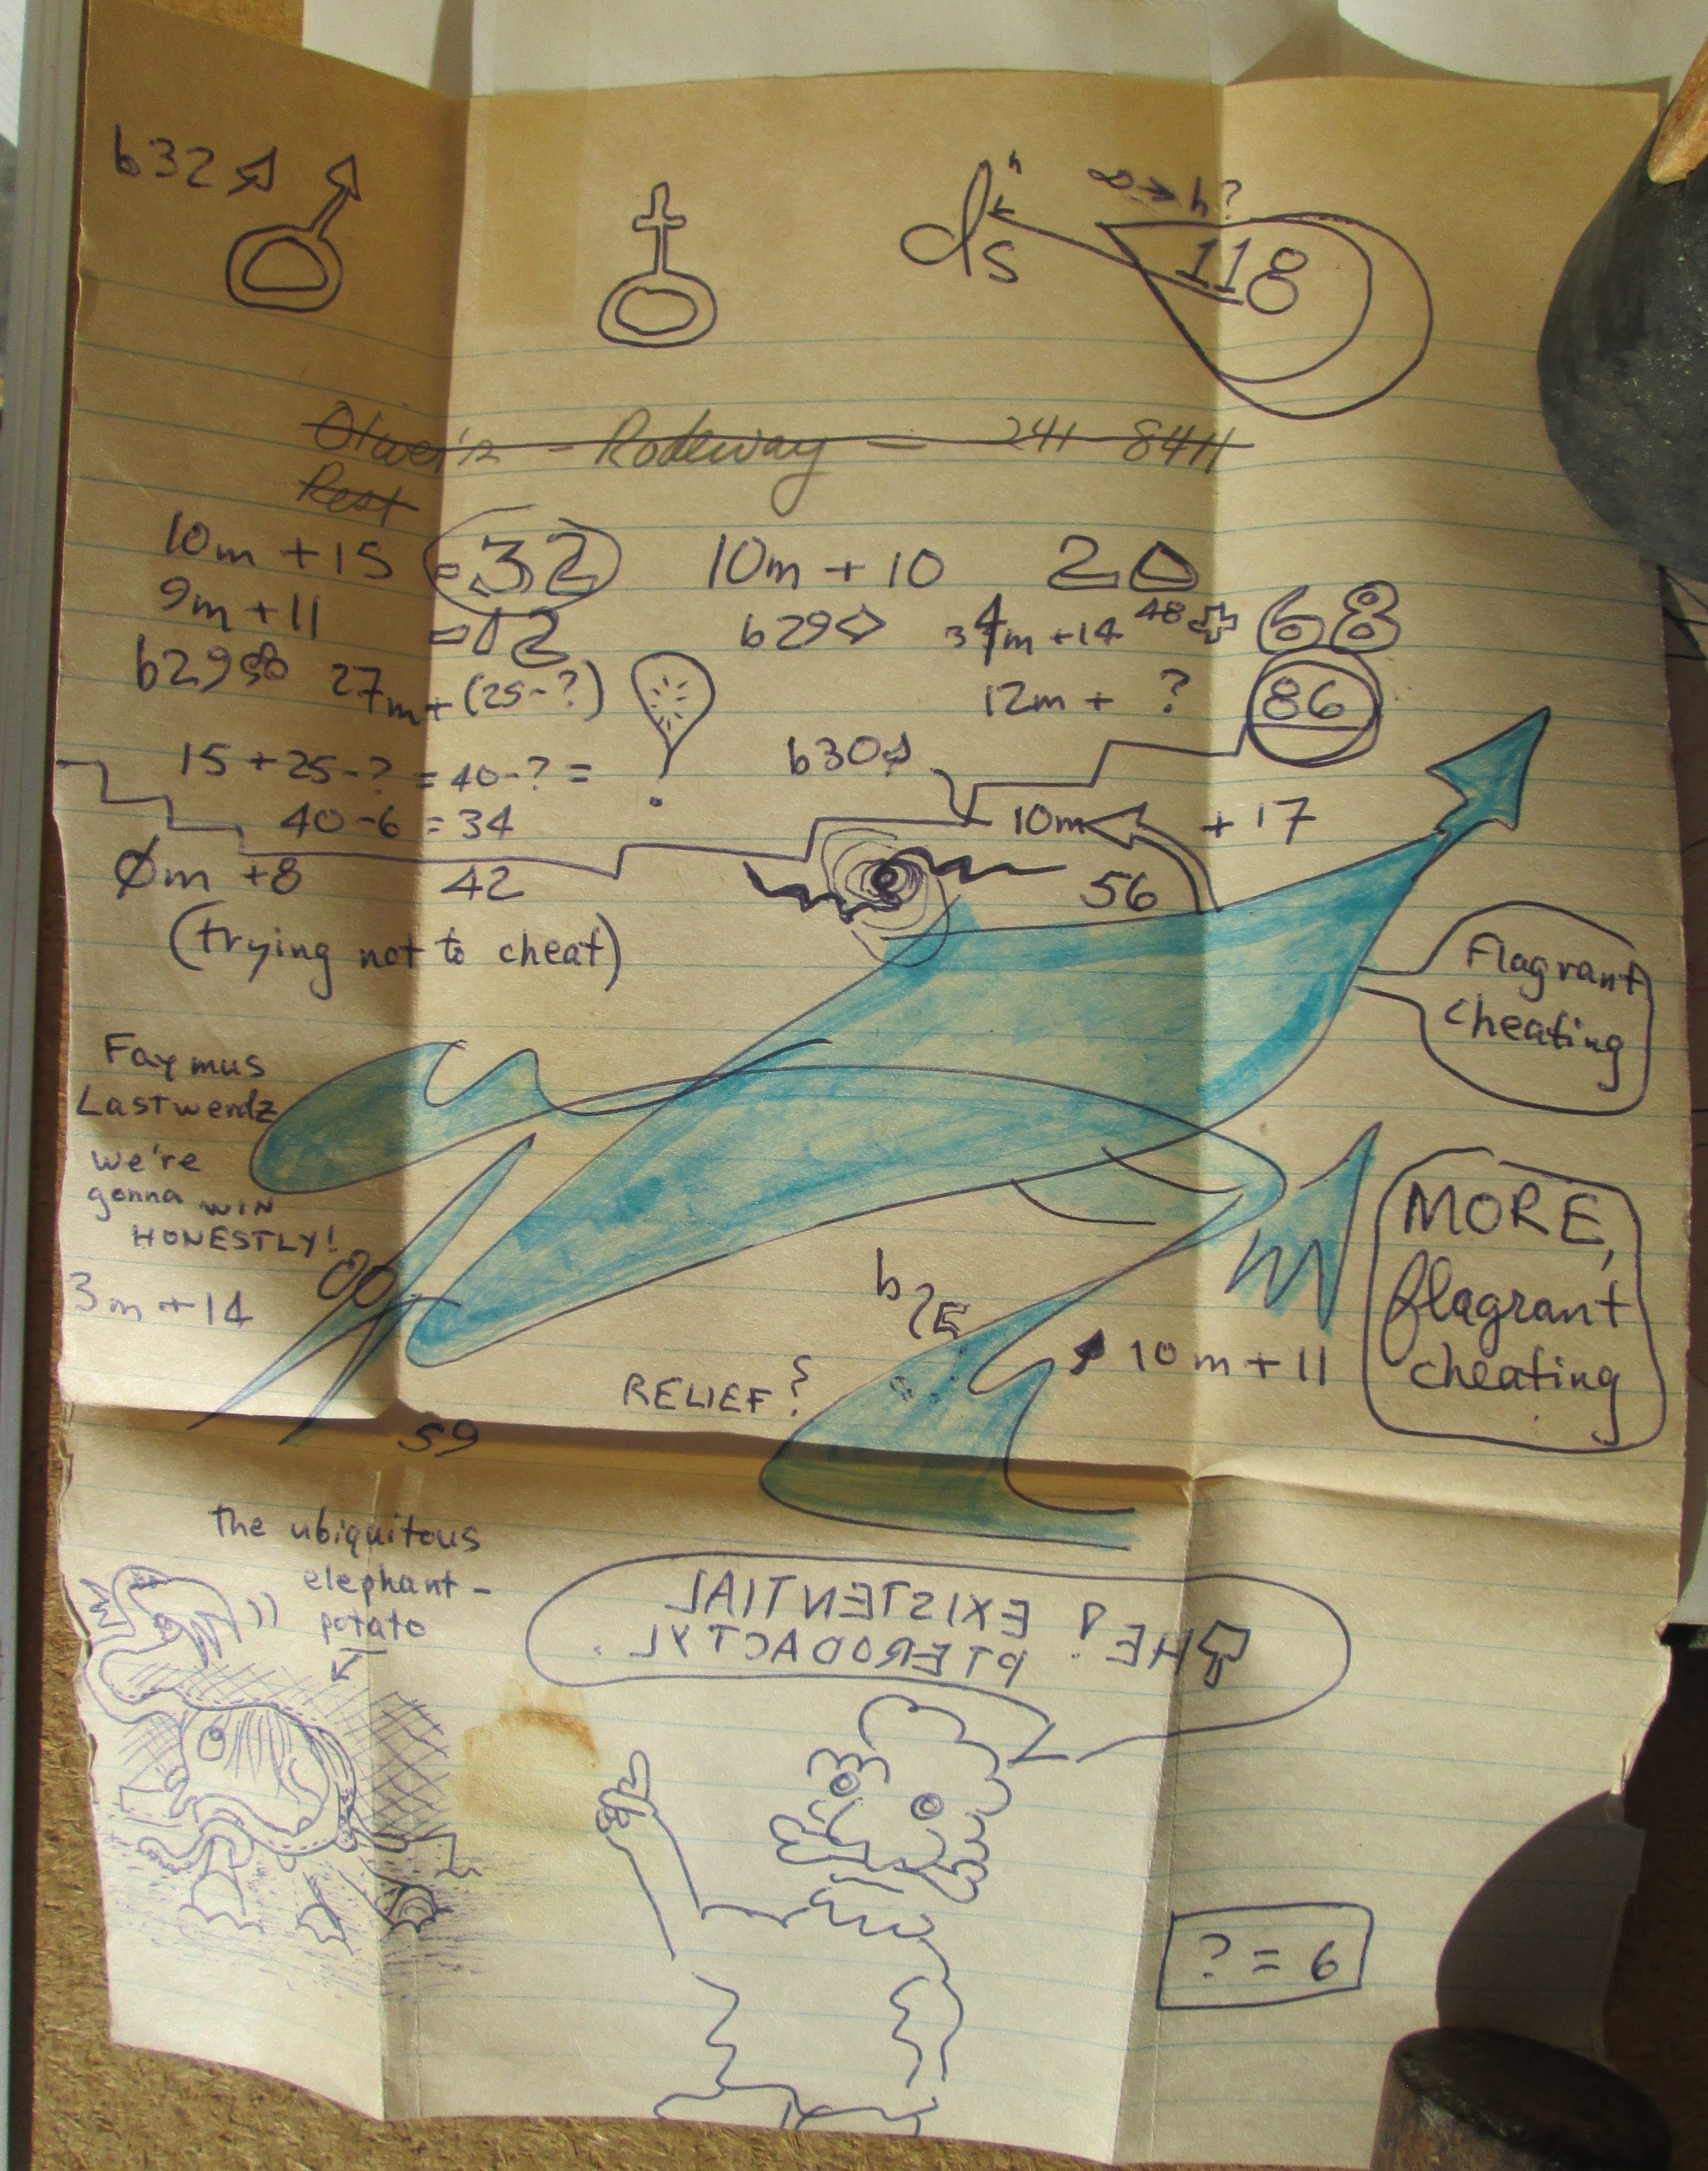 b32♠
ds"
∞→h?
118
Rodeway = 241-8411
Rest
10m +15 =32 10m + 10 20
9m+11 =12 b29◇ 34m +14 48 68
b29 27m+(25-?) 12m + ? 86
15+25-? = 40-? = b30♠
40-6 = 34 10m + 17
0m +8 42 56
(trying not to cheat)
Flagrant
cheating
Faymus
Lastwerdz
we're
gonna WIN
HONESTLY!
3m+14
MORE,
flagrant
cheating
10m+11
RELIEF?
59
the ubiquitous
elephant-
potato
THE? EXISTENTIAL
PTERODACTYL.
? = 6